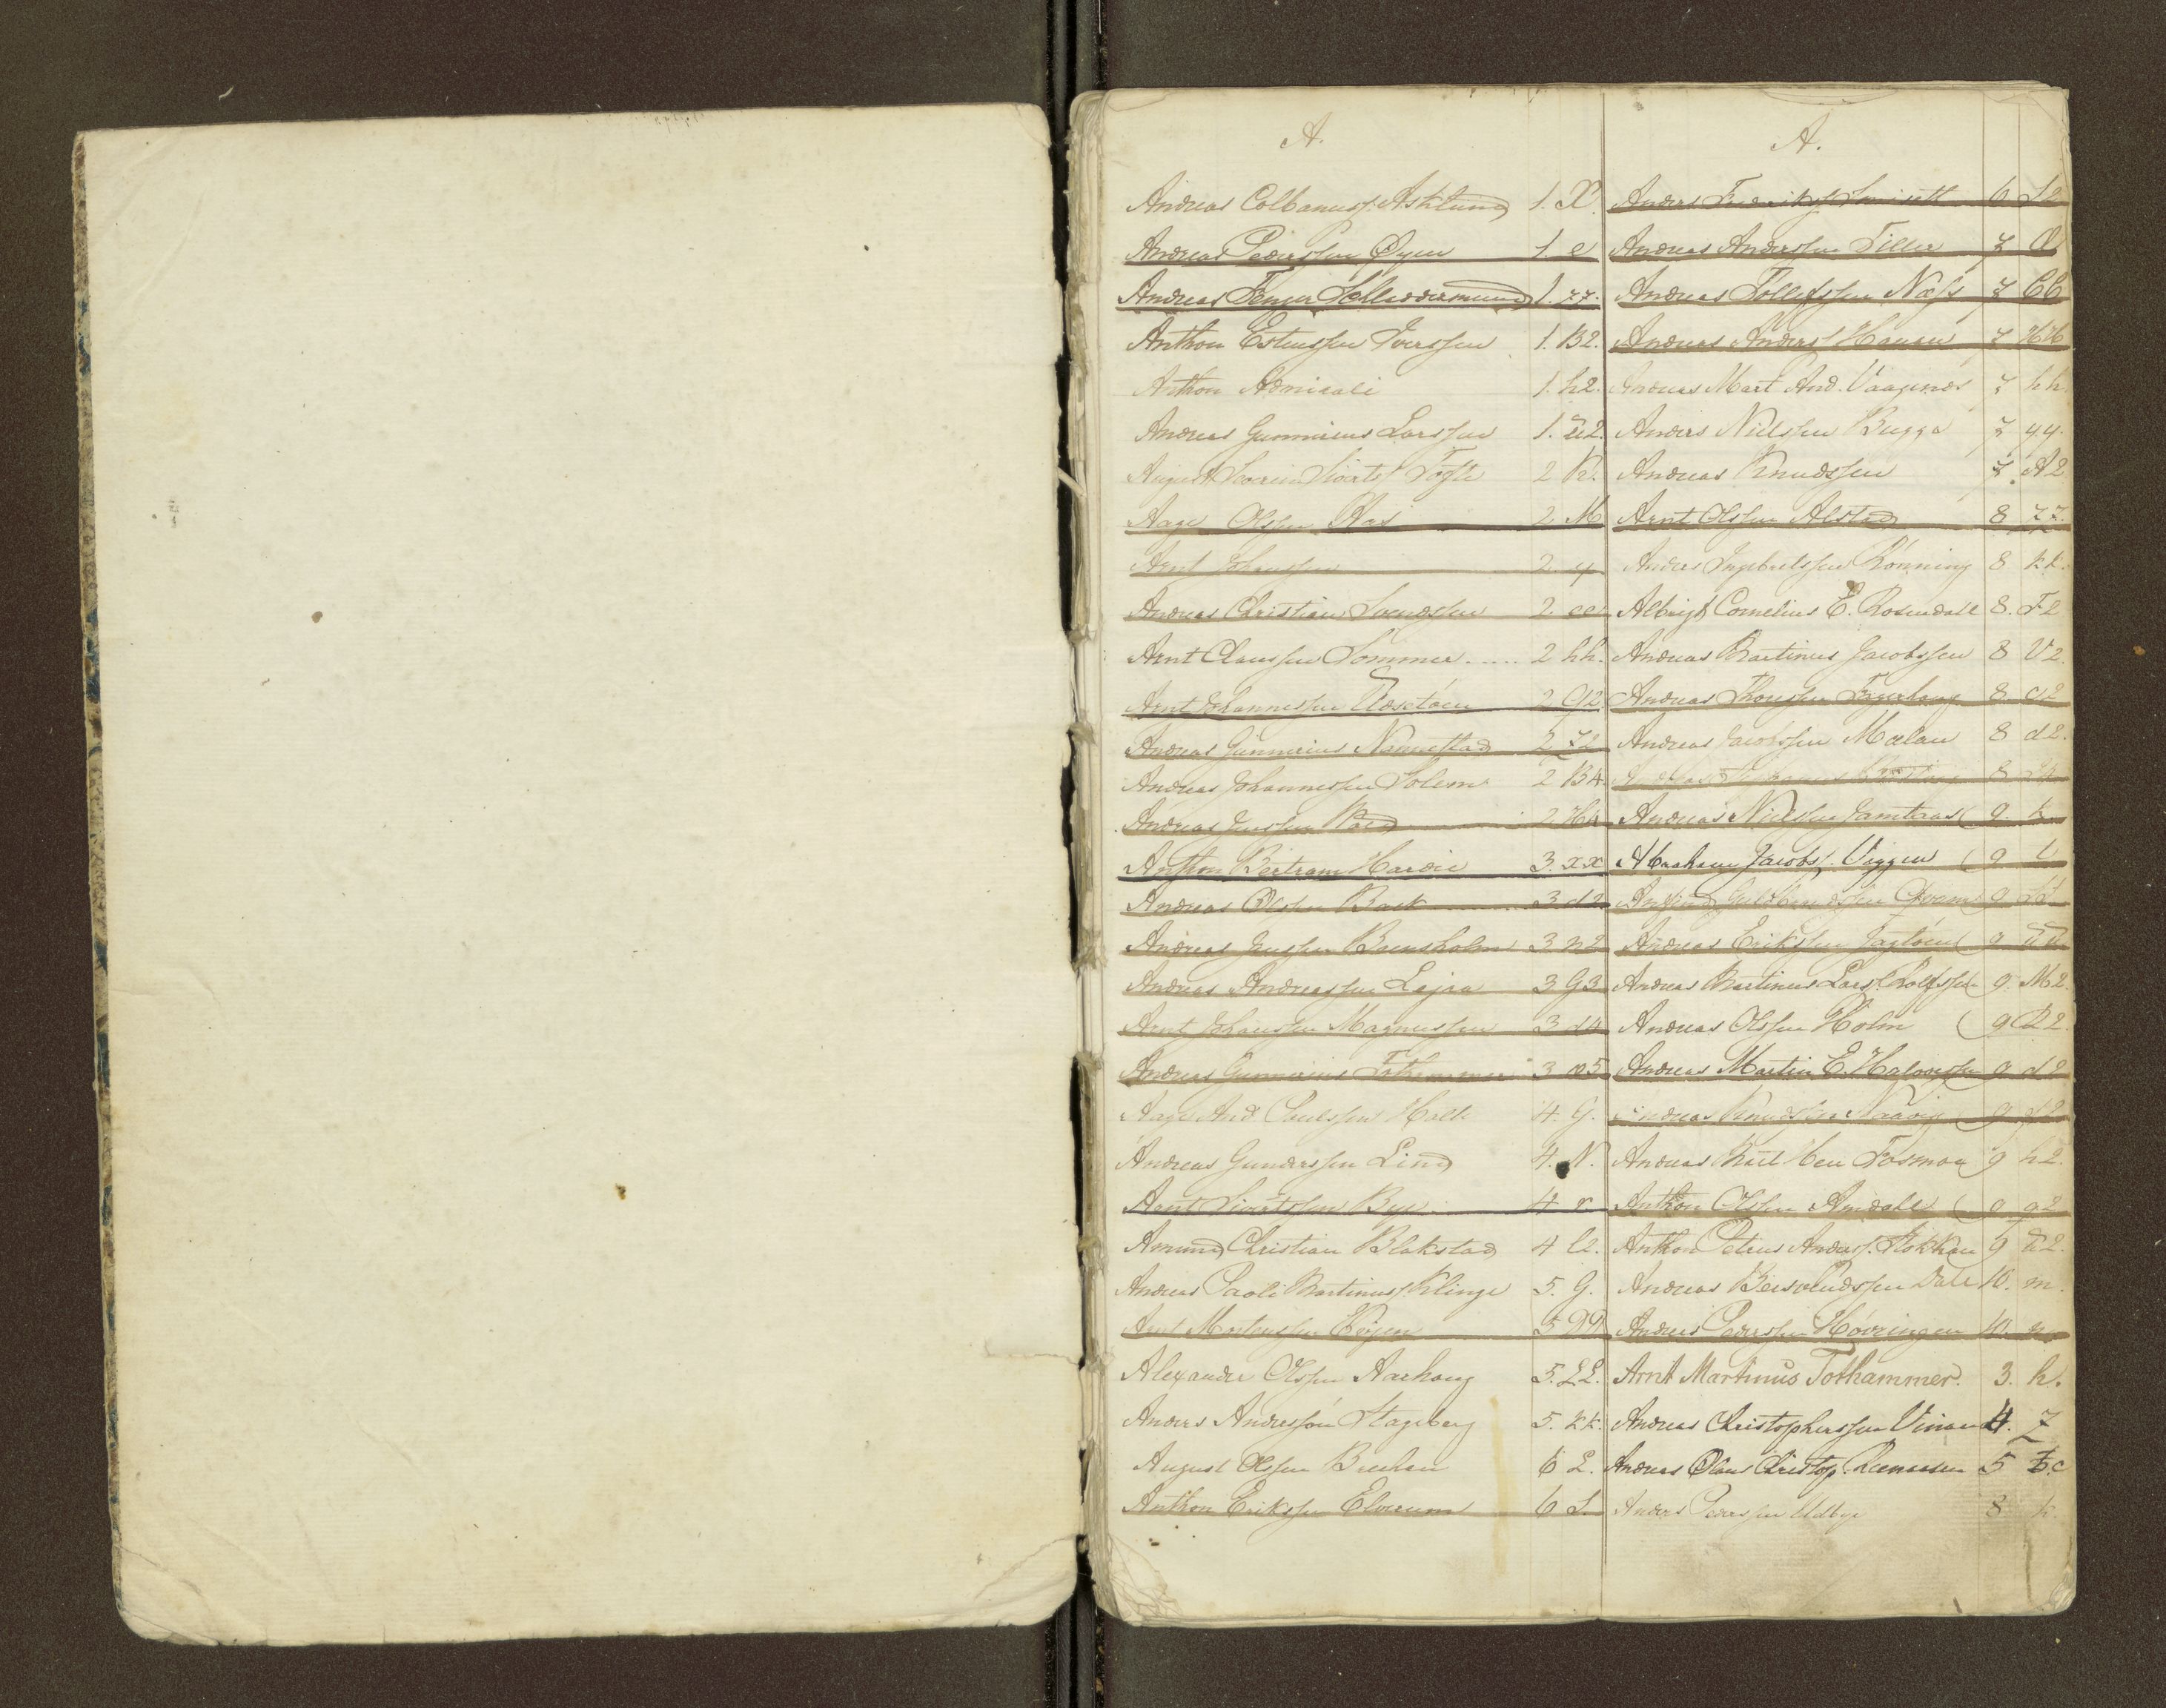 A.
Andreas Colbanusf. Asklund 1. X.
Andreas Pedersen Øyen 1. e
Andreas Fenger 1. zz.
Anthon Estensen Iversen 1. B2.
Anthon Admirali 1. h2.
Andreas Gunnerius Larssen 1. ü2.
August Sivertsf Tofte 2 K.
Aage Olssen Aas 2. M
Arnt Johanssen 2. y
Andreas Christian Svendssen 2. ee
Arnt Claussen Sommer ..... 2 hh.
Arnt Johannessen 2 Q2
Andreas Gunnerius Nannestad 2 z2
Andreas Johannessen Solem 2 B4.
Andreas Jenssen 2 H4
Anthon Bertram Hardie 3. xx
Andreas Olssen Bask 3 d2
Andreas Jenssen Brensholm 3 n2
Andreas Andreassen Lajan 3 G3
Arnt Johanssen Magnussen 3 d4
Andreas Gunnerius 3 o5
Aage And Paulssen Holte 4. G.
Andreas Gunderssen Lind 4. N.
Arnt Sivertssen Bye 4 r
Amund Christian Blakstad 4 l2.
Andreas Paoli Martinusf. Klinge 5. G.
Arnt Mortenssen 5 DD
Alexander Olssen Aarhoug 5. LL.
Anders Andressøn Stageberg 5. kk.
August Olssen Brechan 6 L.
Anthon Erikssen Elverum 6 S.
A.
Anders Frederiksf 6 S2
Andreas Anderssen Tiller 7 Æ
Andreas Tollefssen Næss 7 CC
Andreas Andersf Hanan 7 HH
Andreas Mart And. Vaagenæs 7 hh.
Anders Nielssen Bugge 7 yy.
Andreas Knudssen 7 A2
Arnt Olssen Alstad 8 zz.
Andreas Ingebretssen Rønning 8 kk.
Albrigt Cornelius E. Rosendahl 8. F2
Andreas Martinus Jacobssen 8 V2.
Andreas Thonssen Fagerhaug 8 c2
Andreas Jacobssen Mælan 8 d2.
Andreas 8
Andreas Nielssen Jamtaas 9. k
Abraham Jacobsf. Viggen 9 l
Amund Guldbrandssen Qvam 9
Andreas Erikssen 9 üü
Andreas Martinus Larsf. Rolfssen 9. M2.
Andreas Olssen Holm 9 P2.
Andreas Martin E. Halvorsen 9 d2
Andreas Knudssen Naavig 9 f2
Andreas Karl Ben Fosmoe 9 h2.
Anthon Olssen Amdahl 9 q2
Anthon Petrus Andersf. Stokkan 9 ü2.
Andreas Bersvendssen Dahl 10. m.
Andreas Pederssen Høvringen 10. n.
Arnt Martinus Tothammer. 3. h.
Andreas Christopherssen Vinan 4. Z
Andreas Olaus Christop. 5 c
Anders Pederssen Udbye 8 k